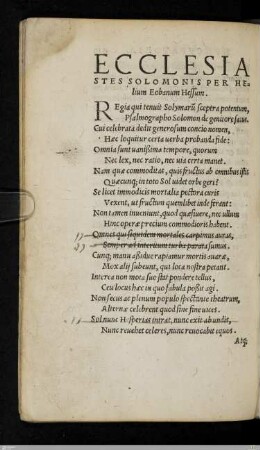 ECCLESIA
STES SOLOMONIS PER HE-
lium Eobanum Hessum.
REgia qui tenuit Solymarũ sceptra potentum,
Psalmographo Solomon de genitore satus.
Cui celebrata dedit generosum concio nomen,
Hæc loquitur certa uerba probanda fide:
Omnia sunt uanissima tempore, quorum
Nec lex, nec ratio, nec uia certa manet.
Nam quæ commoditas, quis fructus ab omnibus istis
Quæcunq; in toto Sol uidet orbe geri?
Scilicet immodicis mortalia pectora curis
Vexent, ut fructum quemlibet inde ferant:
Non tamen inueniunt, quod quæsiuere, nec ullum
Hinc operæ precium commodioris habent.
Omnes quisquidem mortales carpimur auræ,
Semper ad interitum turba parata sumus.
Cunq; manu assidue rapiamur mortis auaræ,
Mox alij subeunt, qui loca nostra petant.
Interea non mota suo stat pondere tellus,
Ceu locus hæc in quo fabula possit agi.
Non secus ac plenum populo spectante theatrum,
Alternæ celebrent quod sine fine uices.
Sol nunc Hesperias intrat, nunc exit ab undis,
Nunc reuehet celeres, nunc reuocabit equos.
Atq;